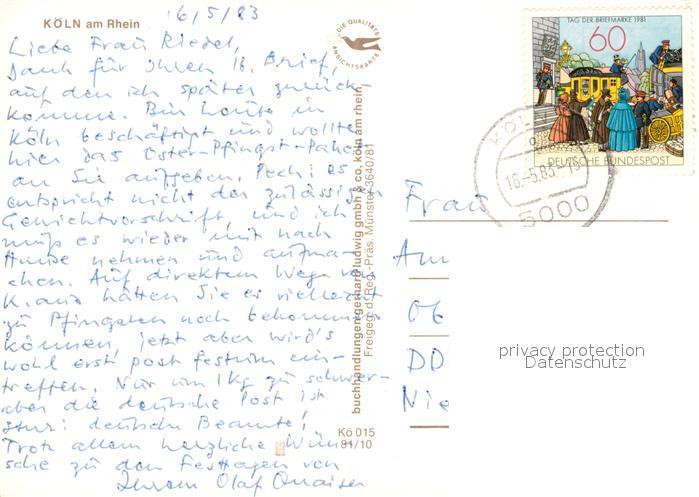 KÖLN am Rhein
16/5/83
Liebe Frau Riedel,
Dank für Ihren 16. Brief,
auf den ich später zurück-
komme. Bin heute in
Köln beschäftigt und wollte
hier das Oster-Pfingst-Paket
an Sie aufgeben. Pech: es
entspricht nicht der zulässigen
Gewichtvorschrift, und ich
muß es wieder mit nach
Hause nehmen und aufma-
chen. Auf direktem Wege von
K. aus hätten Sie es vielleicht
zu Pfingsten noch bekommen
können, jetzt aber wird's
wohl erst post festum ein-
treffen. Nur um 1kg zu schwer-
aber die deutsche Post ist
stur: deutsche Beamte!
Trotz allem herzliche Wün-
sche zu den Festtagen von
Ihrem Olaf
DIE QUALITÄTS
ANSICHTSKARTE
buchhandlungen gerhard ludwig gmbh & co. köln am rhein
Freigeg. d. Reg.-Präs. Münster 3640/81
Kö 015
81/10
TAG DER BRIEFMARKE 1981
60
DEUTSCHE BUNDESPOST
KÖL
16.-5.83.-19
5000
Frau
Am
06
DD
Nie
privacy protection
Datenschutz